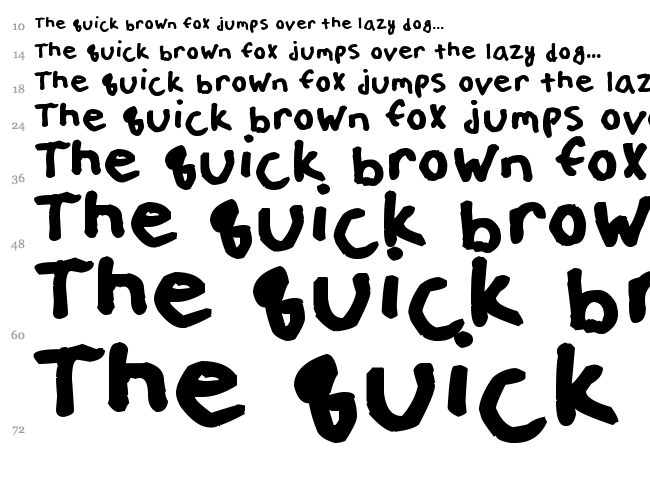 10 The quick brown fox jumps over the lazy dog...
14 The quick brown fox jumps over the lazy dog...
18 The quick brown fox jumps over the laz
24 The quick brown fox jumps ov
36 The quick brown fox
48 The quick brow
60 The quick br
72 The quick